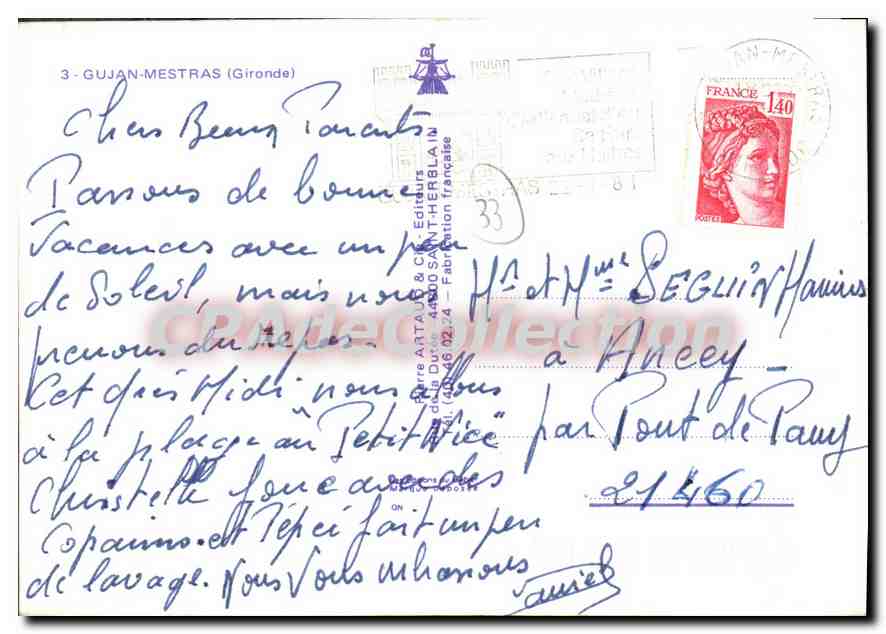 3 - GUJAN-MESTRAS (Gironde)
Chers Beaux Parents
Passons de bonne
vacances avec un peu
de Soleil, mais nous
prenons du repas.
Cet après Midi nous allons
à la plage au "Petit Nice"
Christelle joue avec des
Copains et Pépé fait un peu
de lavage. Nous Vous embrassons
Pierre ARTAUD & Cie - Editeurs
de la Dutée 44800 SAINT-HERBLAIN
Tél. (40) 46.02.24 — Fabrication française
33
FRANCE 1,40
POSTES
Mr et Mme SEGUIN Marius
à Ancey -
par Pont de Pany
21460
CPAdeCollection